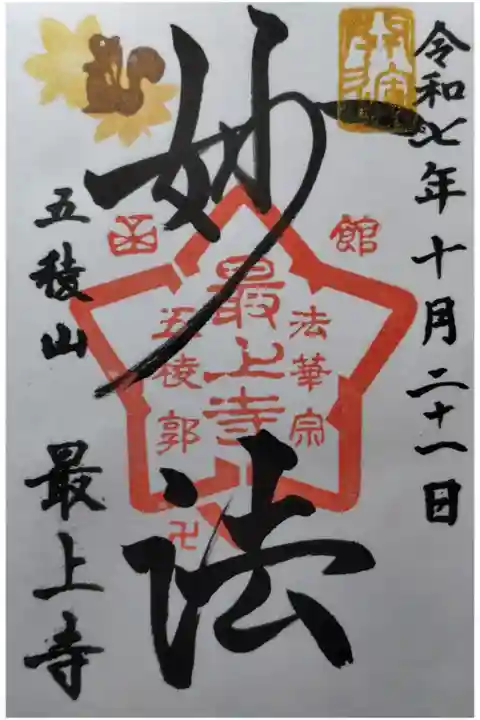 令和七年十月二十一日
妙法
五稜山
最上寺
函館
法華宗
最上寺
五稜郭
卍